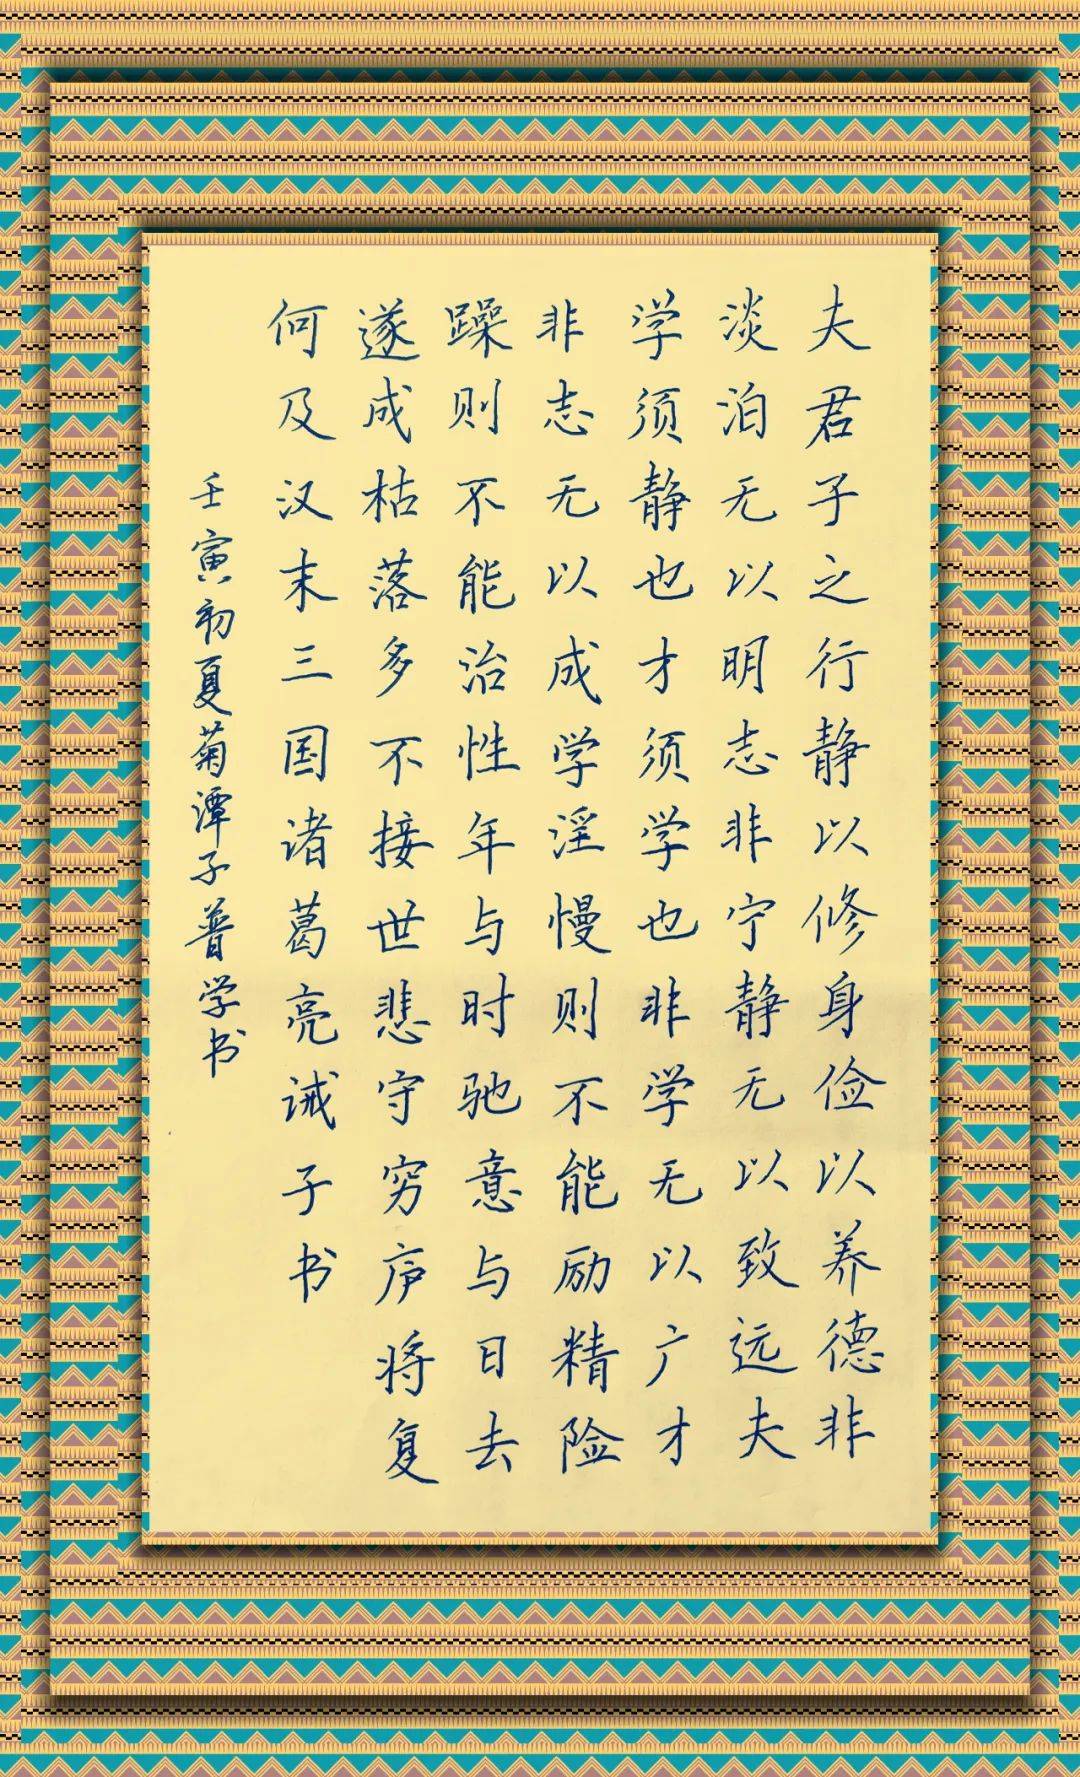 夫君子之行静以修身俭以养德非
淡泊无以明志非宁静无以致远夫
学须静也才须学也非学无以广才
非志无以成学淫慢则不能励精险
躁则不能治性年与时驰意与日去
遂成枯落多不接世悲守穷庐将复
何及汉末三国诸葛亮诫子书
壬寅初夏菊潭子普学书